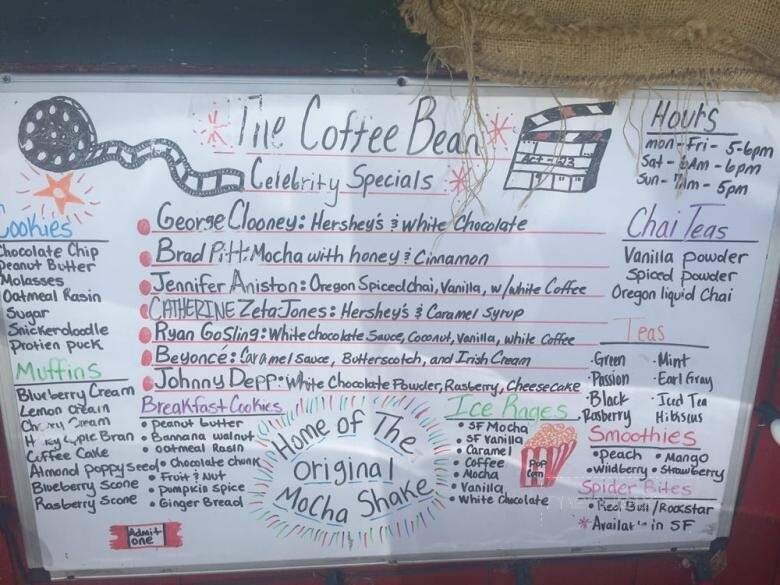 The Coffee Bean
Celebrity Specials
Act - 123
Hours
mon - Fri - 5-6pm
Sat - 6Am - 6pm
Sun - 7Am - 5pm
George Clooney: Hershey's & White Chocolate
Brad Pitt: Mocha with honey & Cinnamon
Jennifer Aniston: Oregon Spiced chai, Vanilla, w/white Coffee
CATHERINE Zeta Jones: Hershey's & Caramel Syrup
Ryan Gosling: White chocolate Sauce, Coconut, Vanilla, white Coffee
Beyoncé: Caramel sauce, Butterscotch, and Irish Cream
Johnny Depp: White Chocolate Powder, Rasberry, Cheesecake
Cookies
Chocolate Chip
Peanut Butter
Molasses
Oatmeal Rasin
Sugar
Snickerdoodle
Protien Puck
Muffins
Blueberry Cream
Lemon Cream
Cream
Bran
Coffee Cake
Almond Poppy seed
Blueberry Scone
Rasberry Scone
Breakfast Cookies
• peanut butter
• Bannana walnut
• oatmeal Rasin
• Chocolate chunk
• Fruit & Nut
• Pumpkin Spice
• Ginger Bread
Admit
one
Home of The
original
Mocha Shake
Ice Rages
• SF Mocha
• SF Vanilla
• Caramel
• Coffee
• Mocha
• Vanilla
• White Chocolate
Pop
Corn
Chai Teas
Vanilla powder
Spiced powder
Oregon liquid Chai
Teas
• Green
• Passion
• Black
• Rasberry
• Mint
• Earl Gray
• Iced Tea
Hibiscus
Smoothies
• Peach • Mango
• Wildberry • Strawberry
Spider Bites
• Red Bull / Rockstar
* Available in SF